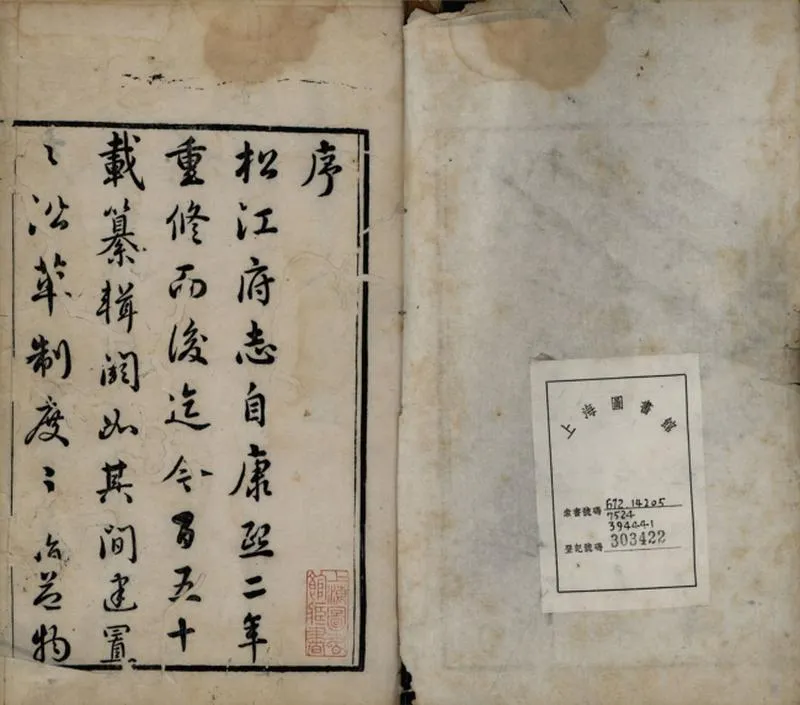 序
松江府志自康熙二年
重修而後迄今百五十
載纂輯闕如其間建置
之沿革制度之損益物
上海圖書
館藏書
上海圖書館
索書號碼 672.14205
7524
394441
登記號碼 303422